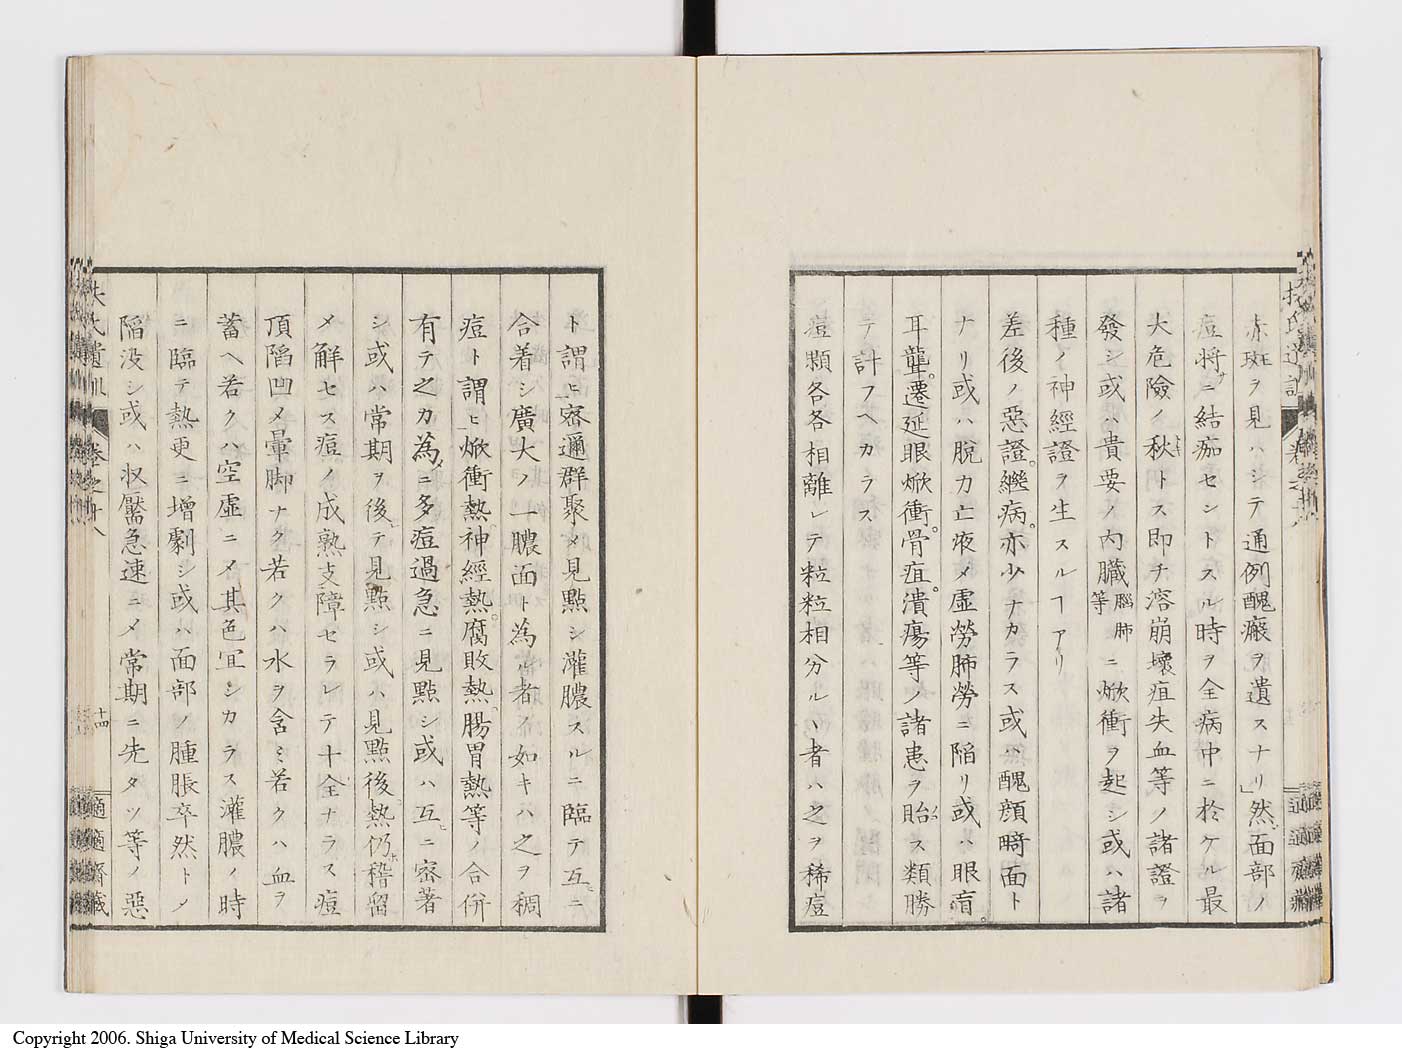 赤斑ヲ見ハシテ通例醜瘢ヲ遺スナリ」然𪜈面部ノ
痘将サニ結痂セントスル時ヲ全病中ニ於ケル最
大危險ノ秋トス即チ溶崩壞疽失血等ノ諸證ヲ
發シ或ハ貴要ノ内臓腦肺等ニ焮衝ヲ起シ或ハ諸
種ノ神經證ヲ生スルヿアリ
差後ノ惡證。繼病。亦少ナカラス或ハ醜顔畸面ト
ナリ或ハ脱力亡液メ虚勞肺勞ニ陥リ或ハ眼盲。
耳聾。遷延眼焮衝。骨疽。潰瘍等ノ諸患ヲ貽ス類勝
テ計フヘカラス
痘顆各各相離レテ粒粒相分ルヽ者ハ之ヲ稀痘
ト謂ヒ密邇群聚メ見點シ灌膿スルニ臨テ互ニ
合着シ廣大ノ一膿面ト為ル者ノ如キハ之ヲ稠
痘ト謂ヒ焮衝熱。神經熱。腐敗熱。腸胃熱等ノ合併
有テ之カ為メニ多痘過急ニ見點シ或ハ互ニ密著
シ或ハ常期ヲ後テ見點シ或ハ見點後熱仍ホ稽留
メ解セス痘ノ成熟支障セラレテ十全ナラス痘
頂陷凹メ暈脚ナク若クハ水ヲ含ミ若クハ血ヲ
蓄ヘ若クハ空虚ニメ其色冝シカラス灌膿ノ時
ニ臨テ熱更ニ增劇シ或ハ面部ノ腫脹卒然トメ
陷没シ或ハ収靨急速ニメ常期ニ先タツ等ノ惡
扶氏遺訓
卷之十八
十四
適適齋藏
Copyright 2006. Shiga University of Medical Science Library